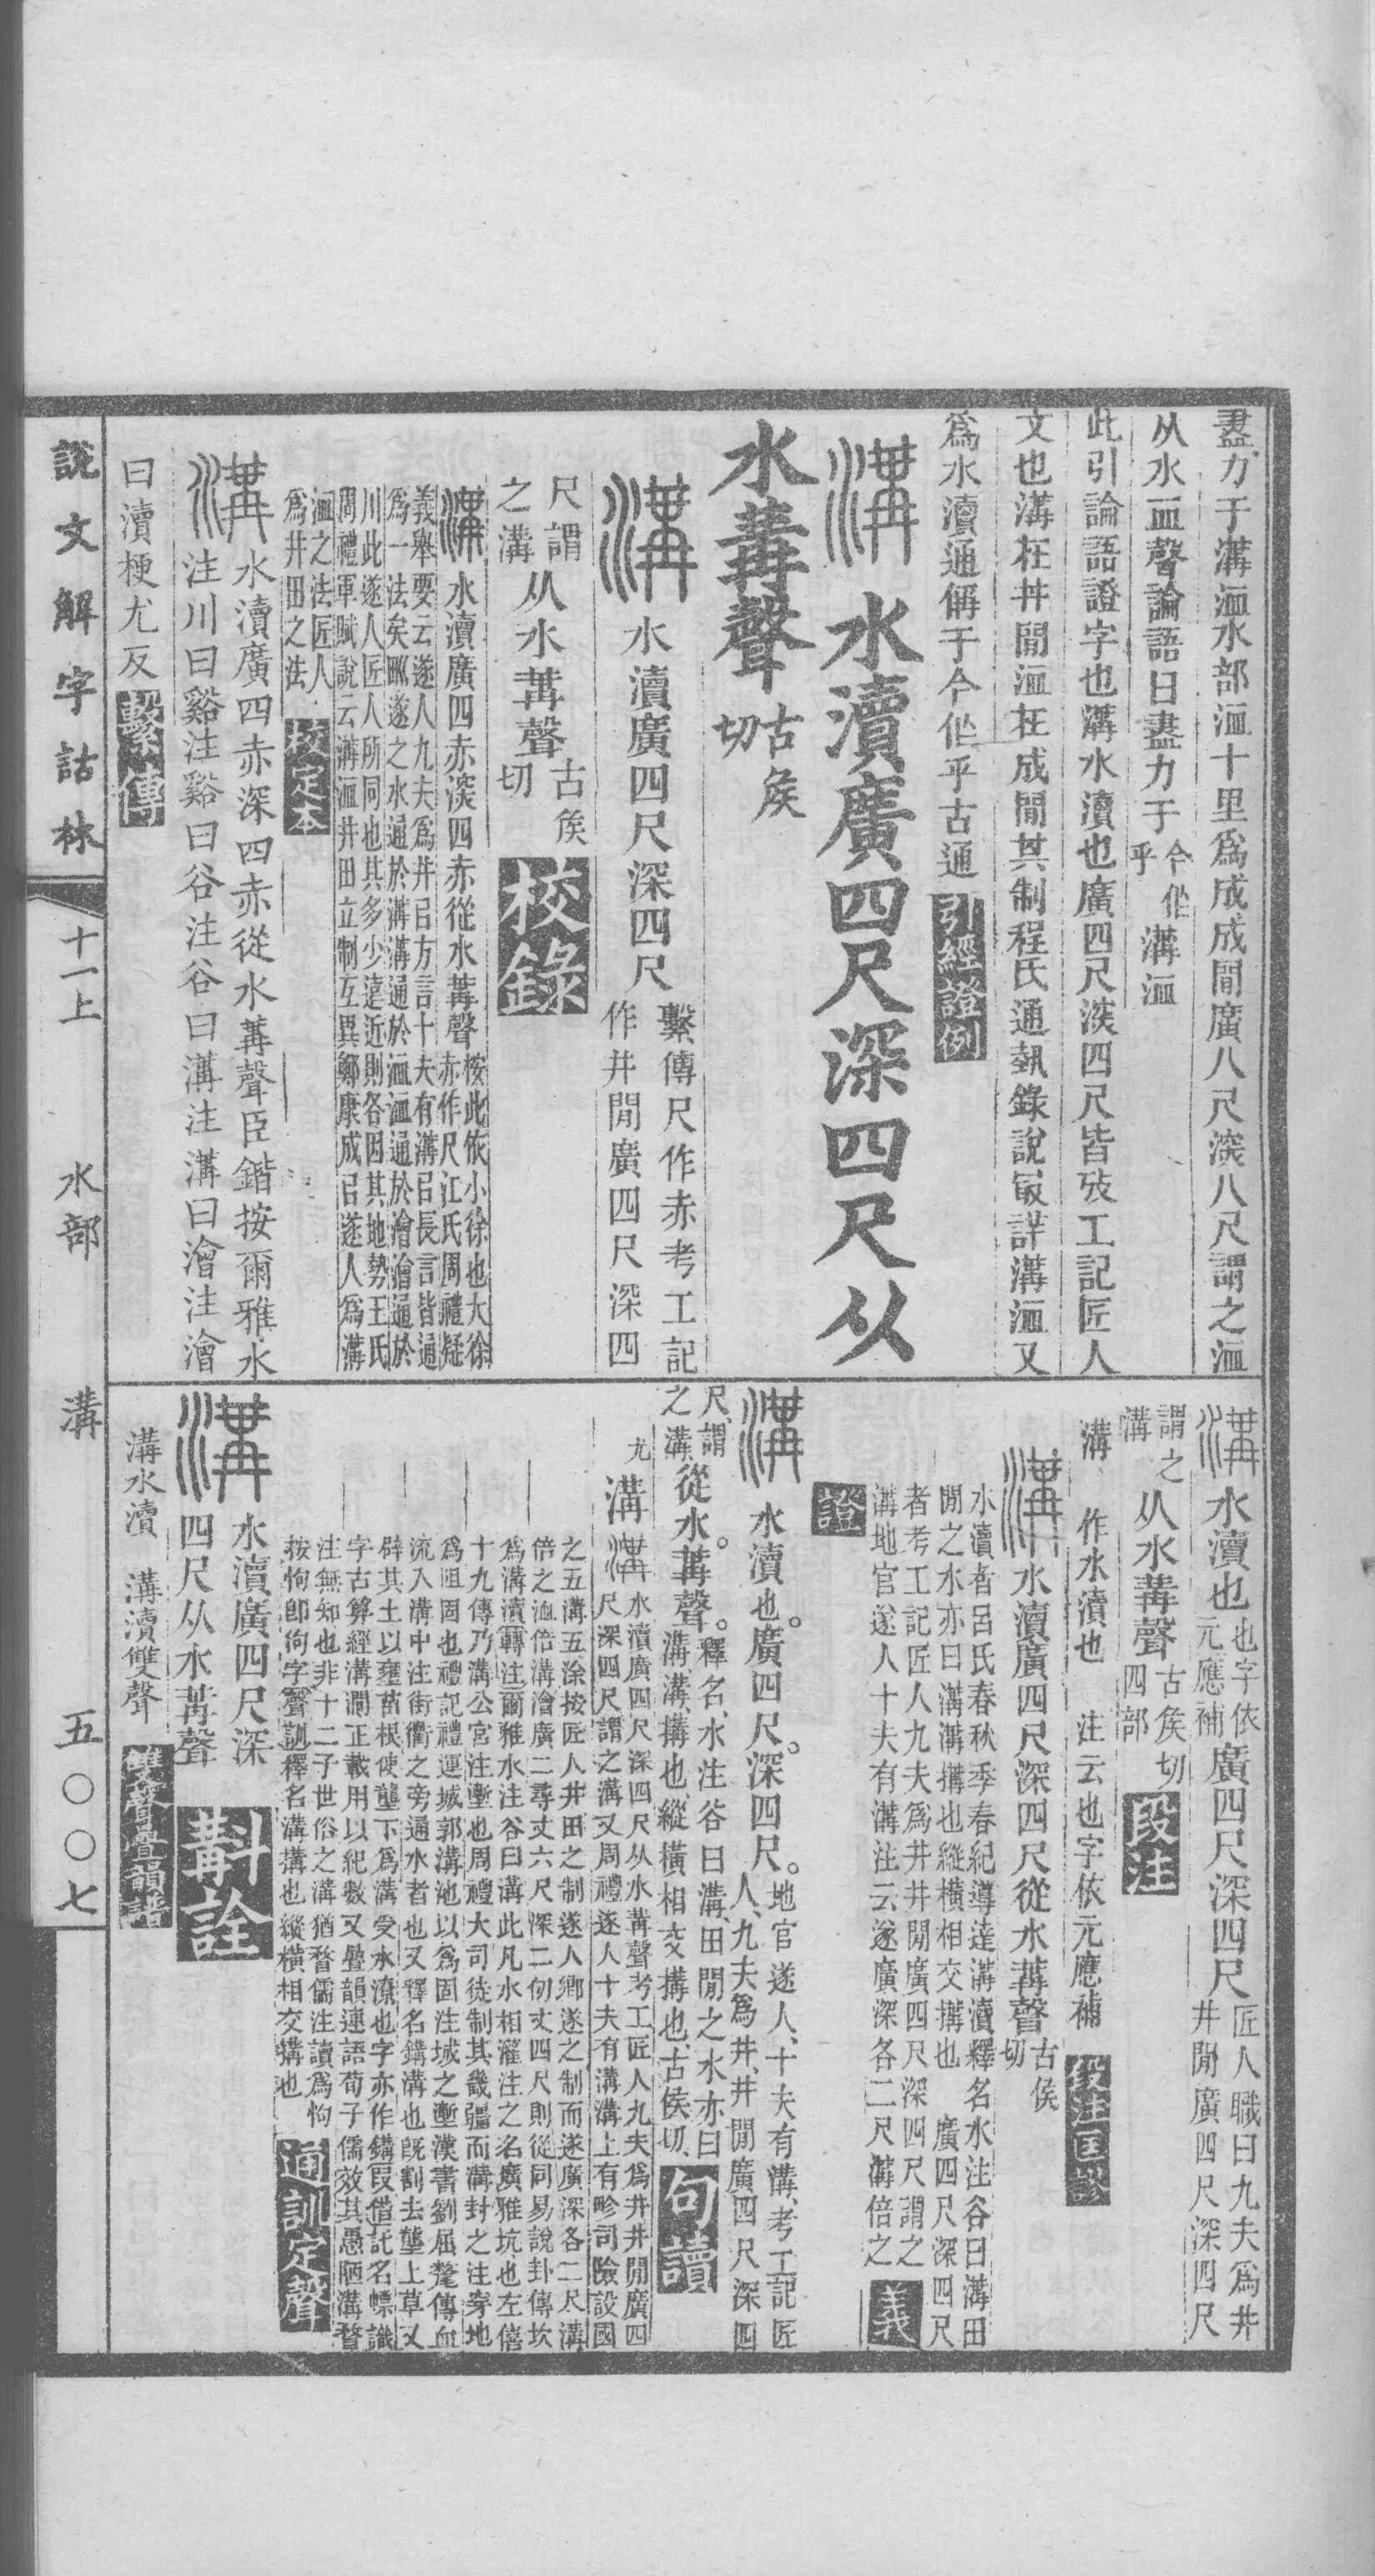 盡力于溝洫水部洫十里爲成成間廣八尺深八尺謂之洫
从水血聲論語曰盡力于今作乎溝洫
此引論語證字也溝水瀆也廣四尺深四尺皆攷工記匠人
文也溝在井間洫在成間其制程氏通埶錄說最詳溝洫又
爲水瀆通偁于今作乎古通 引經證例
溝 水瀆廣四尺深四尺从
水冓聲 古矦切
溝 水瀆廣四尺深四尺 繫傳尺作赤考工記作井閒廣四尺深四
尺謂之溝 从水冓聲 古矦切 校錄
溝 水瀆廣四赤深四赤從水冓聲 桉此依小徐也大徐赤作尺江氏周禮疑
義舉要云遂人九夫爲井㠯方言十夫有溝㠯長言皆通
爲一法矣畎遂之水通於溝溝通於洫洫通於澮澮通於
川此遂人匠人所同也其多少遠近則各因其地勢王氏
周禮軍賦說云溝洫井田立制互異鄭康成㠯遂人爲溝
洫之法匠人爲井田之法 校定本
溝 水瀆廣四赤深四赤從水冓聲臣鍇按爾雅水
注川曰谿注谿曰谷注谷曰溝注溝曰澮注澮
曰瀆梗尤反 繫傳
溝 水瀆也 也字依元應補 廣四尺深四尺 匠人職曰九夫爲井井閒廣四尺深四尺
謂之溝 从水冓聲 古矦切四部 段注
溝 作水瀆也 注云也字依元應補 段注匡謬
溝 水瀆廣四尺深四尺從水冓聲 古侯切
水瀆者呂氏春秋季春紀導達溝瀆釋名水注谷曰溝田
閒之水亦曰溝溝搆也縱橫相交搆也 廣四尺深四尺
者考工記匠人九夫爲井井閒廣四尺深四尺謂之
溝地官遂人十夫有溝注云遂廣深各二尺溝倍之 義
證
溝 水瀆也。廣四尺。深四尺。 地官遂人、十夫有溝、考工記匠人、九夫爲井、井閒廣四尺深四
尺、謂之溝、 從水。冓聲。 釋名、水注谷曰溝、田閒之水亦曰溝、溝、搆也、縱橫相交搆也、古侯切、 句讀
溝 溝 水瀆廣四尺深四尺从水冓聲考工匠人九夫爲井井閒廣四
尺深四尺謂之溝又周禮遂人十夫有溝溝上有畛司險設國
之五溝五涂按匠人井田之制遂人鄉遂之制而遂廣深各二尺溝
倍之洫倍溝澮廣二尋丈六尺深二仞丈四尺則從同易說卦傳坎
爲溝瀆轉注爾雅水注谷曰溝此凡水相灌注之名廣雅坑也左僖
十九傳乃溝公宮注塹也周禮大司徒制其畿疆而溝封之注穿地
爲阻固也禮記禮運城郭溝池以爲固注城之塹漢書劉屈氂傳血
流入溝中注街衢之旁通水者也又釋名鐫溝也旣割去壟上草又
辟其土以壅苗根使壟下爲溝受水潦也字亦作鐫叚借託名幖識
字古算經溝澗正載用以紀數又疊韻連語荀子儒效其愚陋溝瞀
注無知也非十二子世俗之溝猶瞀儒注讀爲怐
按怐卽佝字聲訓釋名溝搆也縱橫相交搆也 通訓定聲
溝 水瀆廣四尺深四尺从水冓聲 斠詮
溝水瀆 溝瀆雙聲 雙聲疊韻譜
說文解字詁林 十一上 水部 溝 五〇〇七